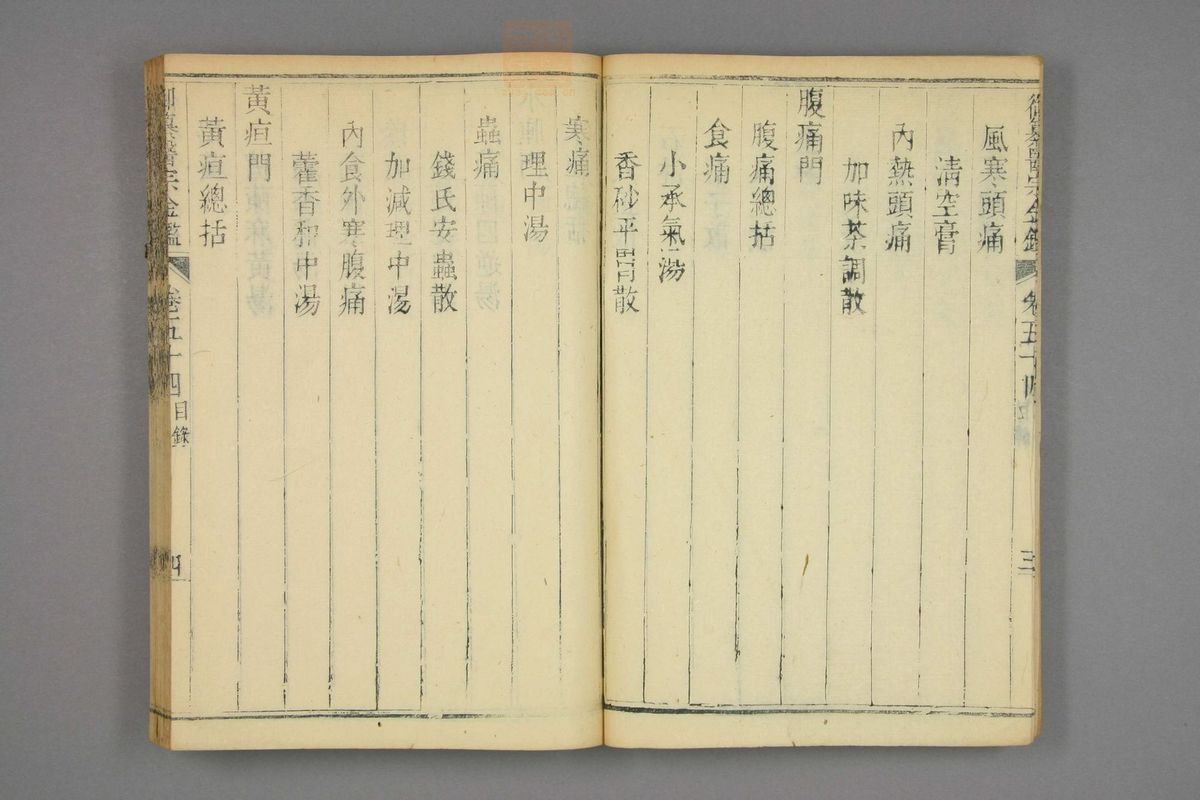 御纂醫宗金鑑
卷五十四
三
風寒頭痛
清空膏
內熱頭痛
加味茶調散
腹痛門
腹痛總括
食痛
小承氣湯
香砂平胃散
寒痛
理中湯
蟲痛
錢氏安蟲散
加減理中湯
內食外寒腹痛
藿香和中湯
黃疸門
黃疸總括
御纂醫宗金鑑
卷五十四
目錄
四